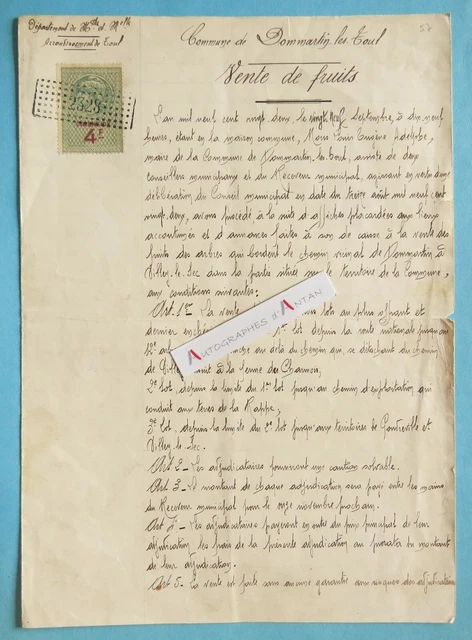 Département de Mthe et Melle
Arrondissement de Toul
57
Commune de Dommartin les Toul
Vente de fruits
2328
4F
L'an mil neuf cent vingt deux le vingt neuf Septembre, à dix neuf
heures, étant en la maison commune, Nous Louis Eugène
maire de la Commune de Dommartin les Toul, assisté de deux
conseillers municipaux et du Receveur municipal, agissant en vertu d'une
délibération du Conseil municipal en date du treize août mil neuf cent
vingt deux, avons procédé à la suite d'affiches placardées aux lieux
accoutumés et d'annonces faites à son de caisse à la vente des
fruits des arbres qui bordent le chemin vicinal de Dommartin à
Villey-le-Sec dans la partie située sur le territoire de la Commune,
aux conditions suivantes:
Art. 1er La vente lots au plus offrant et
dernier enché 1er lot depuis la route nationale jusqu'au
12e ar che au delà du chemin qui se détachant du chemin
de Ville it à la ferme du Charmois,
2e lot, depuis la limite du 1er lot jusqu'au chemin d'exploitation qui
conduit aux terres de la Rappe,
3e lot, depuis la limite du 2e lot jusqu'aux territoires de Gondreville et
Villey-le-Sec.
Art 2 - Les adjudicataires fourniront une caution solvable.
Art 3 - Le montant de chaque adjudication sera payé entre les mains
du Receveur municipal pour le onze novembre prochain.
Art 4 - Les adjudicataires payeront en outre du prix principal de leur
adjudication les frais de la présente adjudication au prorata du montant
de leur adjudication.
Art 5 - La vente est faite sans aucune garantie aux risques des adjudicataires
AUTOGRAPHES d'ANTAN